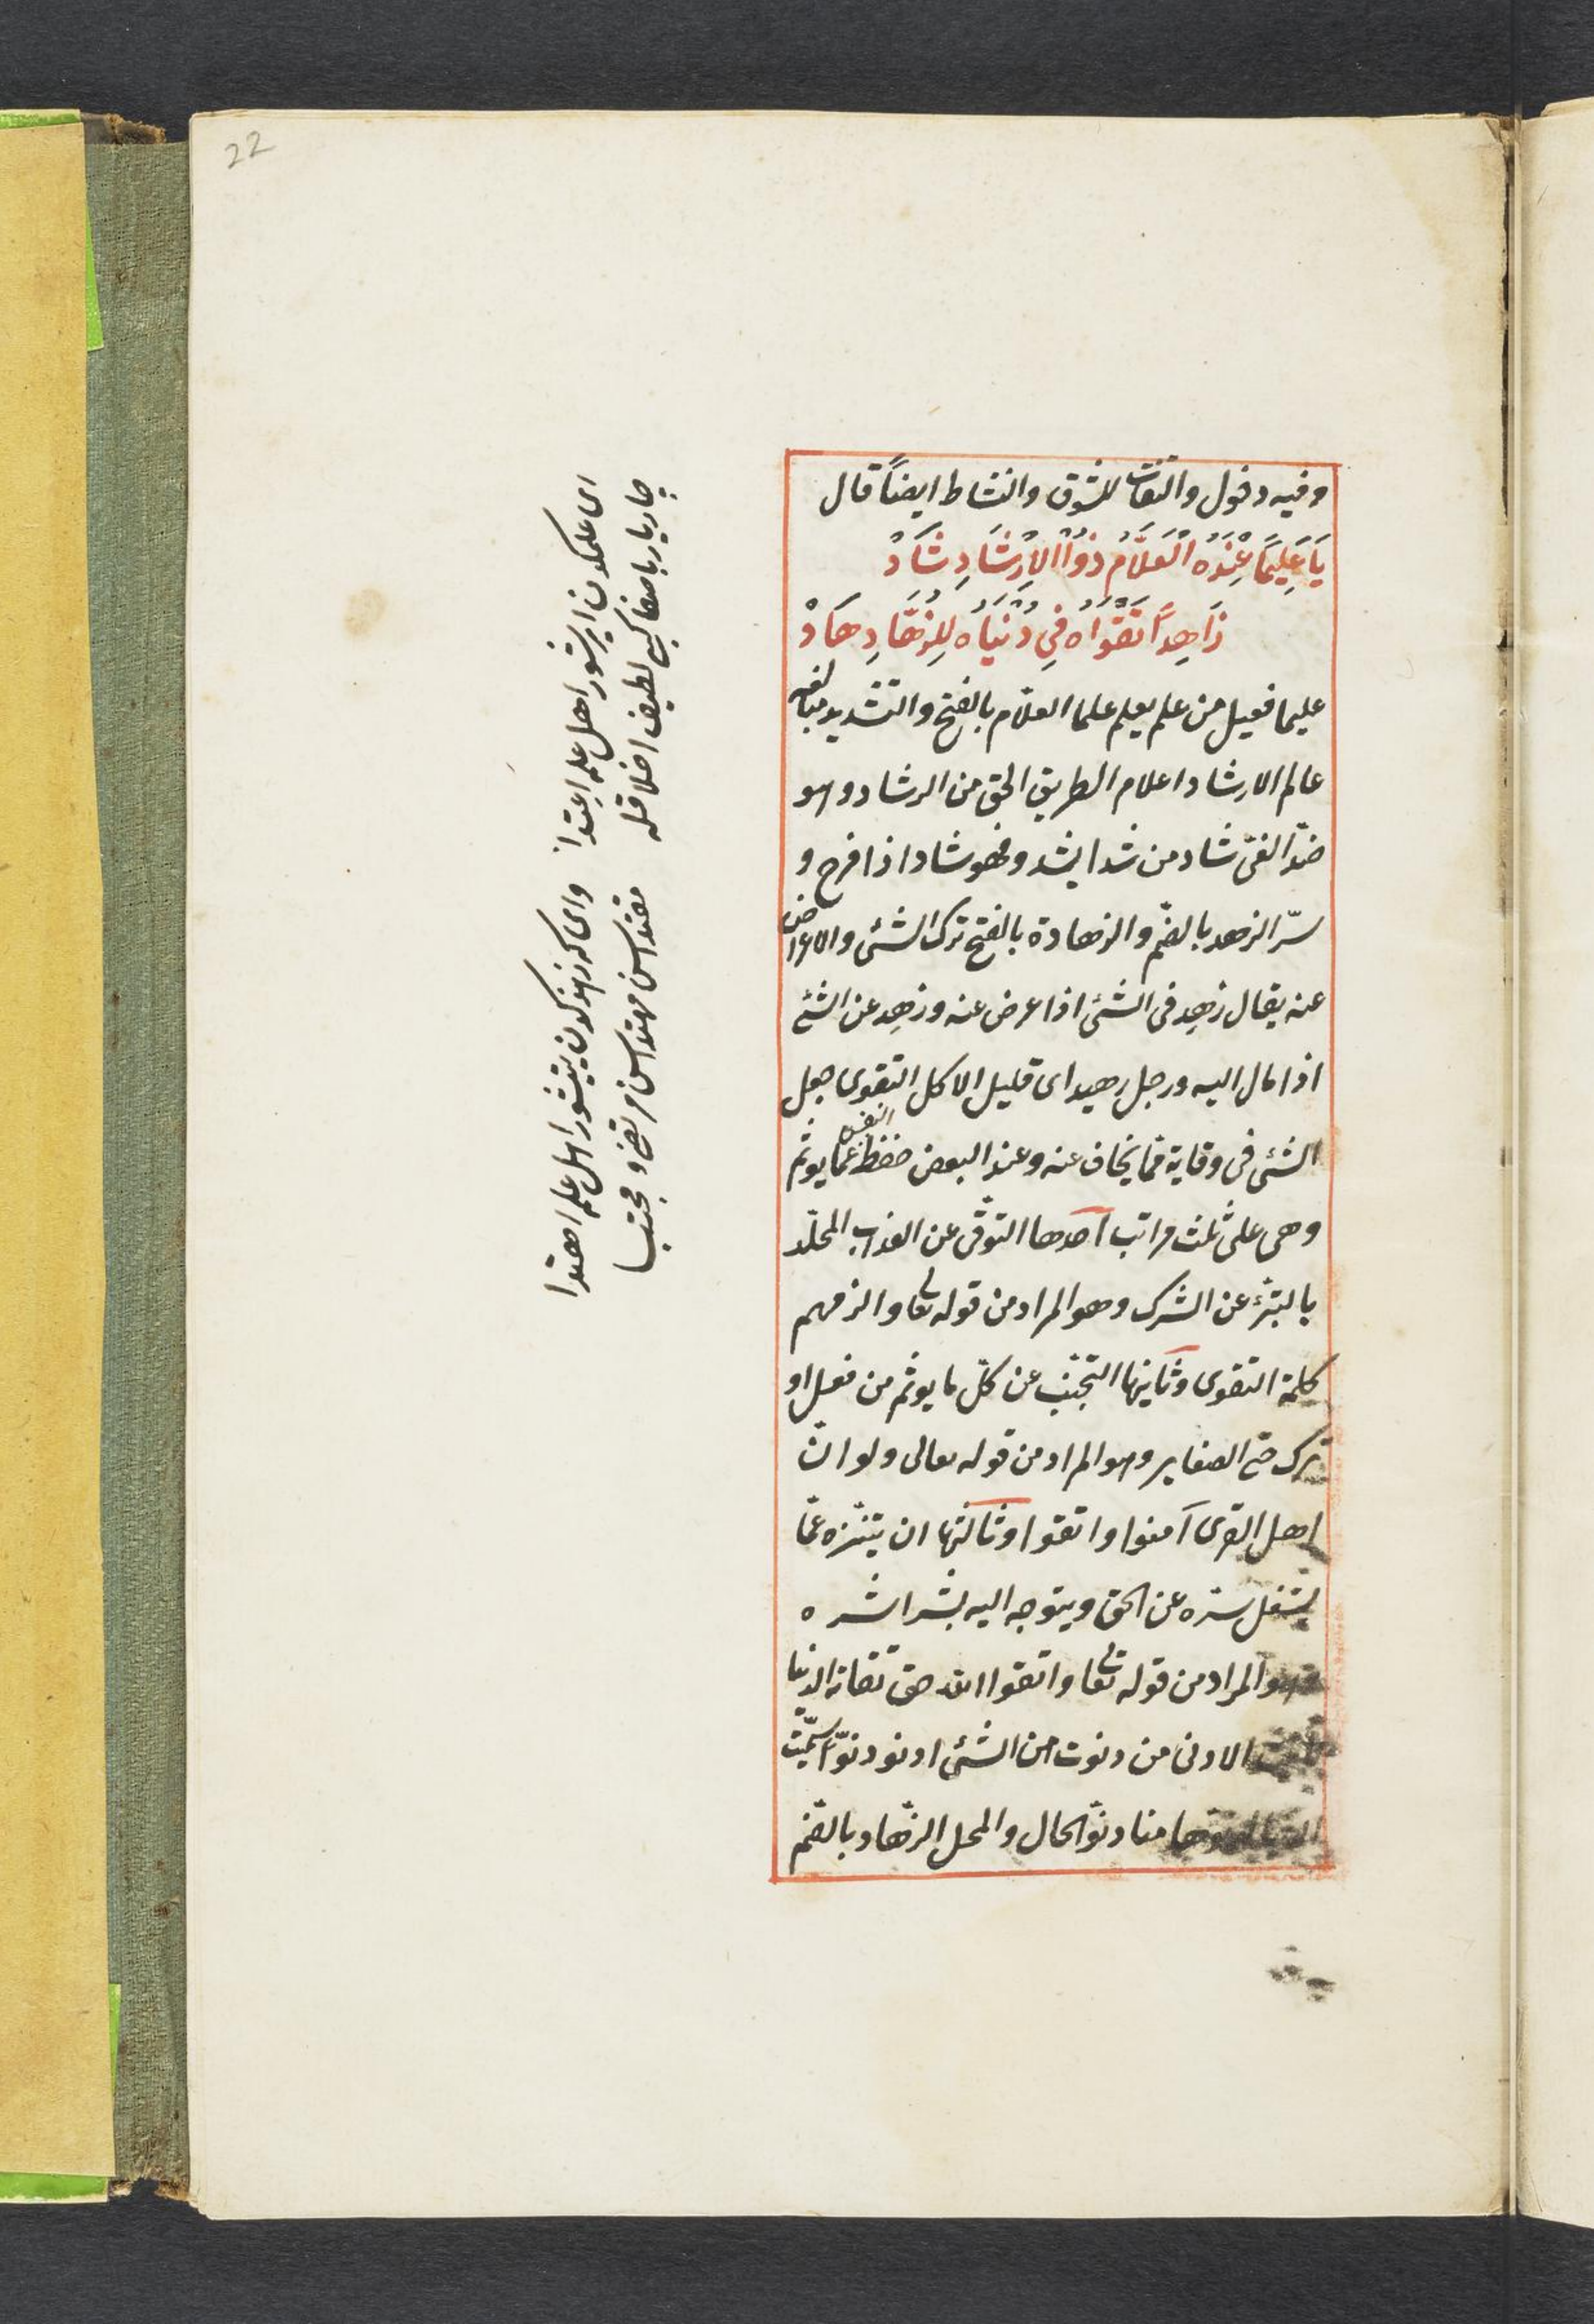 22
وفيه دخول والتفات للشوق والنشاط ايضاً قال
يَا عَلِيمًا عِنْدَهُ الْعَلَّامُ ذُوا الاِرْشَادِ شَادْ
زَاهِدًا تَقْوَاهُ فِي دُنْيَاهُ لِلزُهَّادِ هَادْ
عليما فعيل من علم يعلم علما العلّام بالفتح والتشديد مبالغة
عالم الارشاد اعلام الطريق الحق من الرشاد وهو
ضدّ الغىّ شاد من شدا يشدو فهو شاد اذا فرح و
سرّ الزهد بالضّم والزهادة بالفتح ترك الشئ والاعراض
عنه يقال زهِد فى الشئ اذا عرض عنه وزهِد عن الشئ
اذا مال اليه ورجل زهيد اى قليل الاكل التقوى جعل
الشئ فى وقاية ممّا يخاف عنه وعند البعض حفظ النفس عمّا يوثم
وهى على ثلث مراتب احدها التوقّى عن العذاب المخلّد
بالتبرّء عن الشرك وهو المراد من قوله تعالى والزمهم
كلمة التقوى وثانيها التجنّب عن كلّ ما يوثم من فعل او
ترك حتى الصغاير وهو المراد من قوله تعالى ولو انّ
اهل القرى آمنوا واتقوا وثالثها ان يتنزه عمّا
يشغل سرّه عن الحق ويتوجه اليه بشراشره
وهو المراد من قوله تعالى واتقوا الله حق تقاته الدنيا
الادنى من دنوت من الشئ ادنو دنوّا سمّيت
منا ودنوّ الحال والمحل الزهّاد بالضّم
اى علمكدن ايرشور اهل علم اعتدا
چار يار باصفا كبى لطيف اخلاقله
واى كه زهدكدن يتيشور اهل علم اهتدا
مقتداسن مهتداسن مرتضى ومجتبا